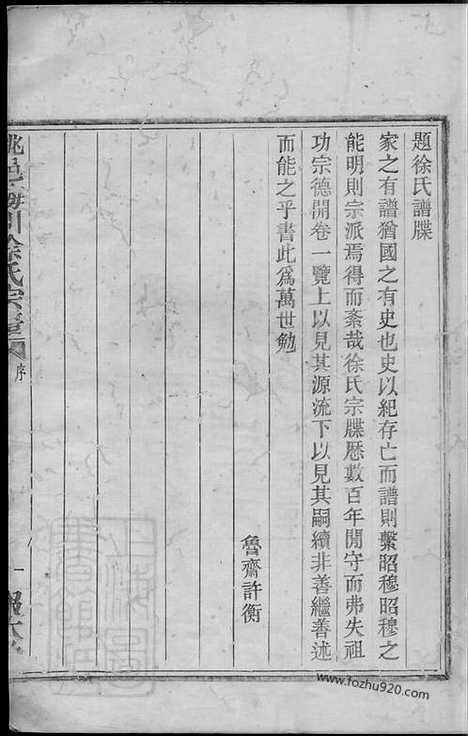 題徐氏譜牒
家之有譜猶國之有史也史以紀存亡而譜則繫昭穆昭穆之
能明則宗派焉得而紊哉徐氏宗牒歷數百年閒守而弗失祖
功宗德開卷一覽上以見其源流下以見其嗣續非善繼善述
而能之乎書此為萬世勉
魯齋許衡
徐氏宗
序
一
www.fozhu920.com